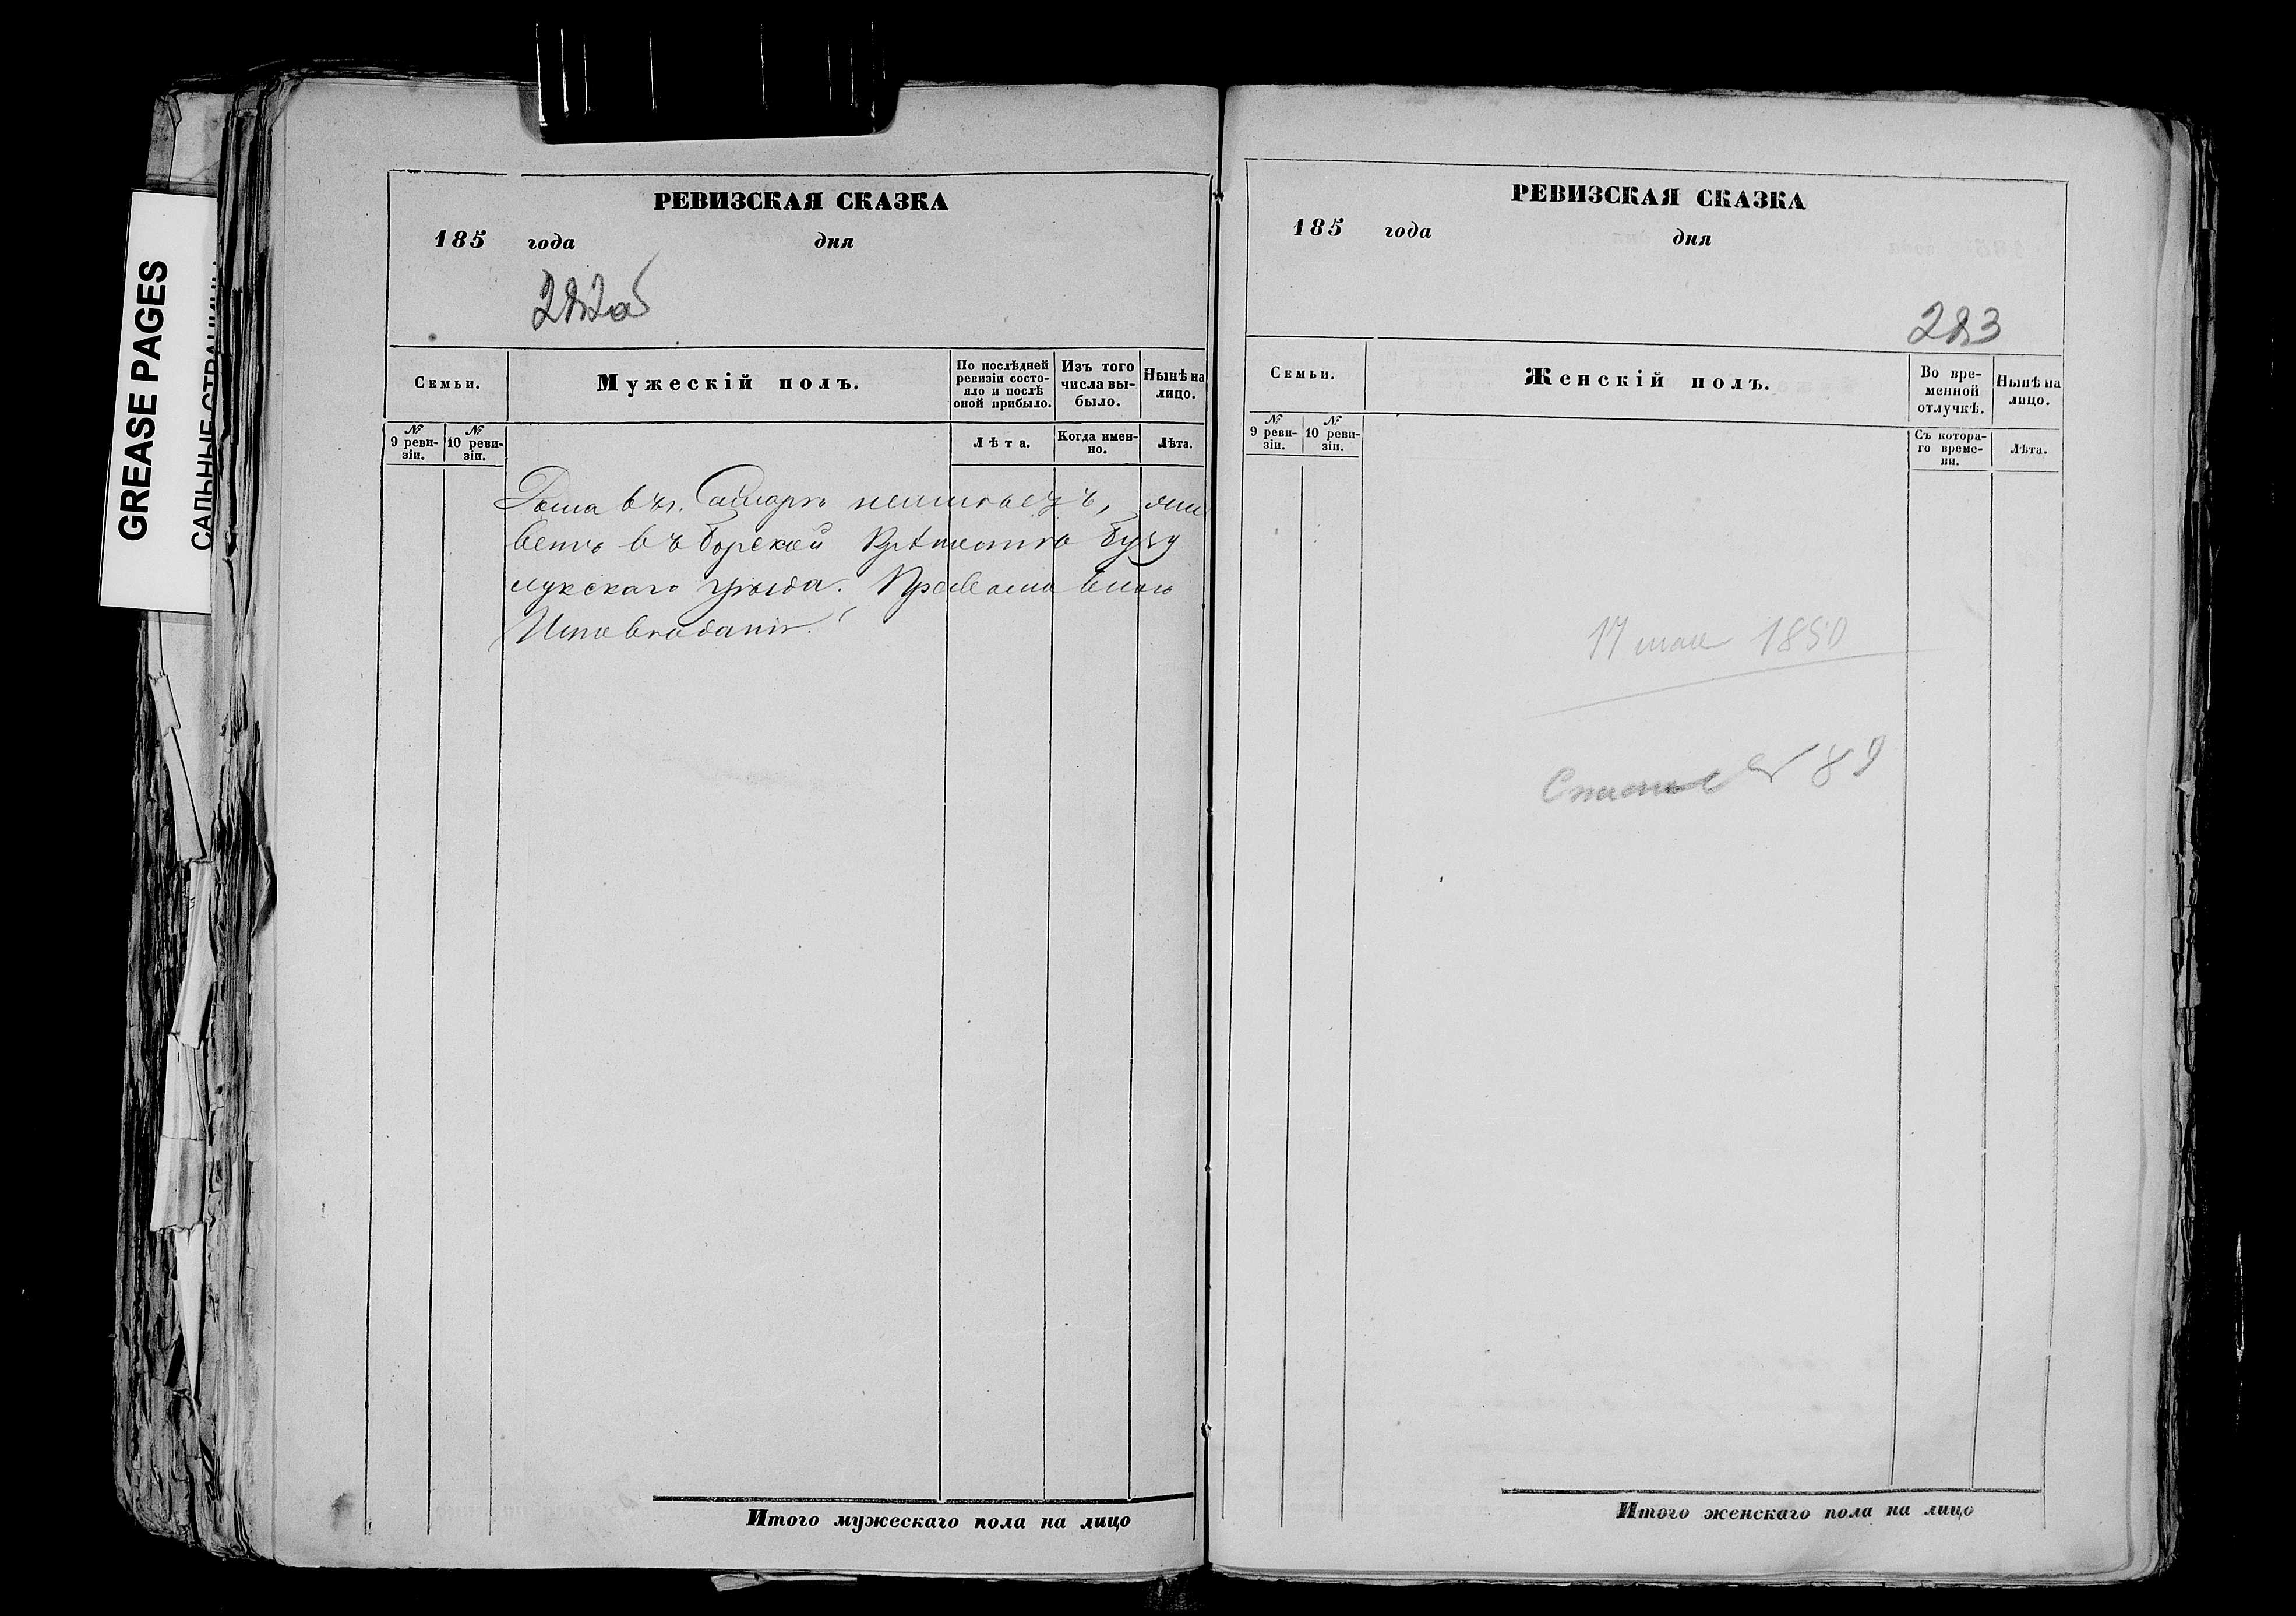 GREASE PAGES
САЛЬНЫЕ СТРАНИЦЫ
РЕВИЗСКАЯ СКАЗКА
185 года дня
282об
Семьи.
Мужескій полъ.
По послѣдней ревизіи состо-
яло и послѣ оной прибыло.
Изъ того числа вы-
было.
Нынѣ на лицо.
№ 9 реви-
зіи.
№ 10 реви-
зіи.
Лѣта.
Когда имен-
но.
Лѣта.
Дома въ г. Самарѣ неимѣетъ, жи
ветъ въ Борской Крѣпости Бузу
лукскаго уѣзда. Православнаго
Исповѣданія.
Итого мужескаго пола на лицо
РЕВИЗСКАЯ СКАЗКА
185 года дня
283
Семьи.
Женскій полъ.
Во вре-
менной
отлучкѣ.
Нынѣ на
лицо.
№ 9 реви-
зіи.
№ 10 реви-
зіи.
Съ котора-
го време-
ни.
Лѣта.
17 мая 1850
№ 89
Итого женскаго пола на лицо